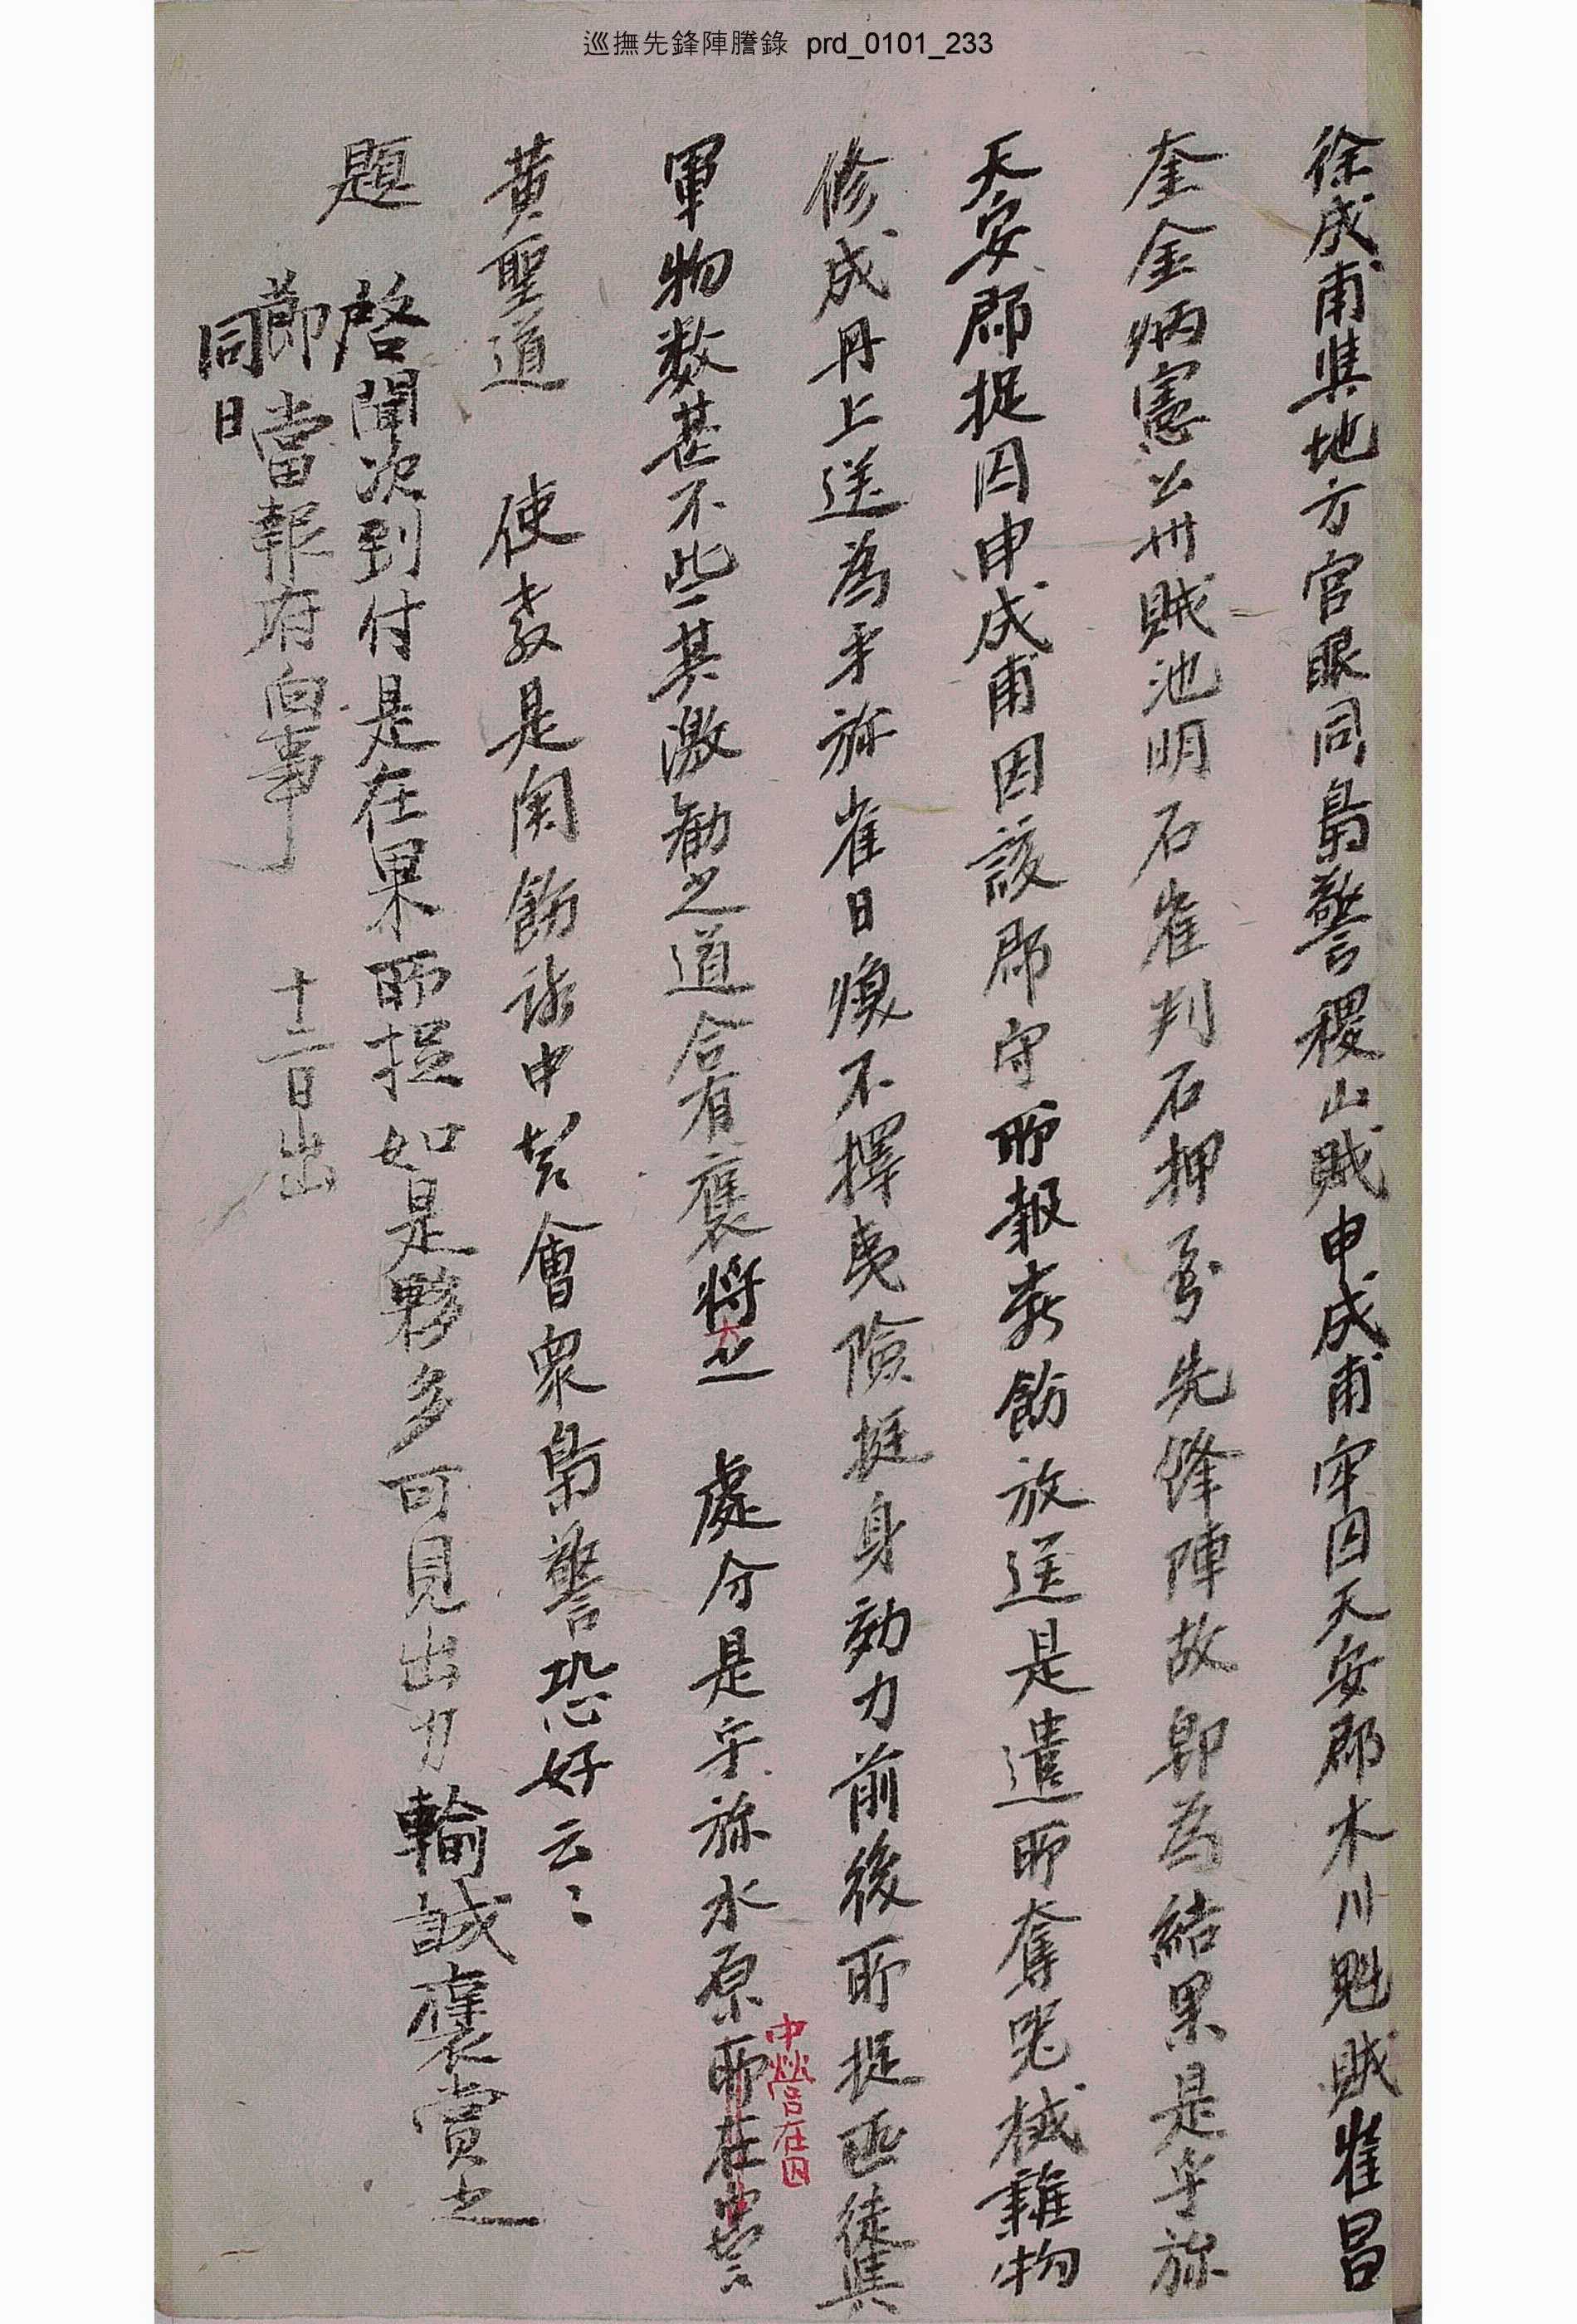 巡撫先鋒陣謄錄 prd_0101_233
徐成甫與地方官眼同梟警稷山賊申成甫牢囚天安郡木川魁賊崔昌
奎金炳憲公州賊池明石崔判石押致先鋒陣故卽爲結果是乎旀
天安郡捉囚申成甫因該郡守所報嚴飭放送是遣所奪兇械雜物
修成冊上送爲乎旀崔日煥不擇夷險挺身効力前後所捉匪徒與
軍物數甚不些其激勸之道合有褒將之 處分是乎旀水原所在囚
中營在囚
黃聖道 使敎是關飭該中營會衆梟警恐好云〻
題 啓聞次到付是在果所捉如是夥多可見出力輸誠褒賞之
節當報府向事 十二日出
同日